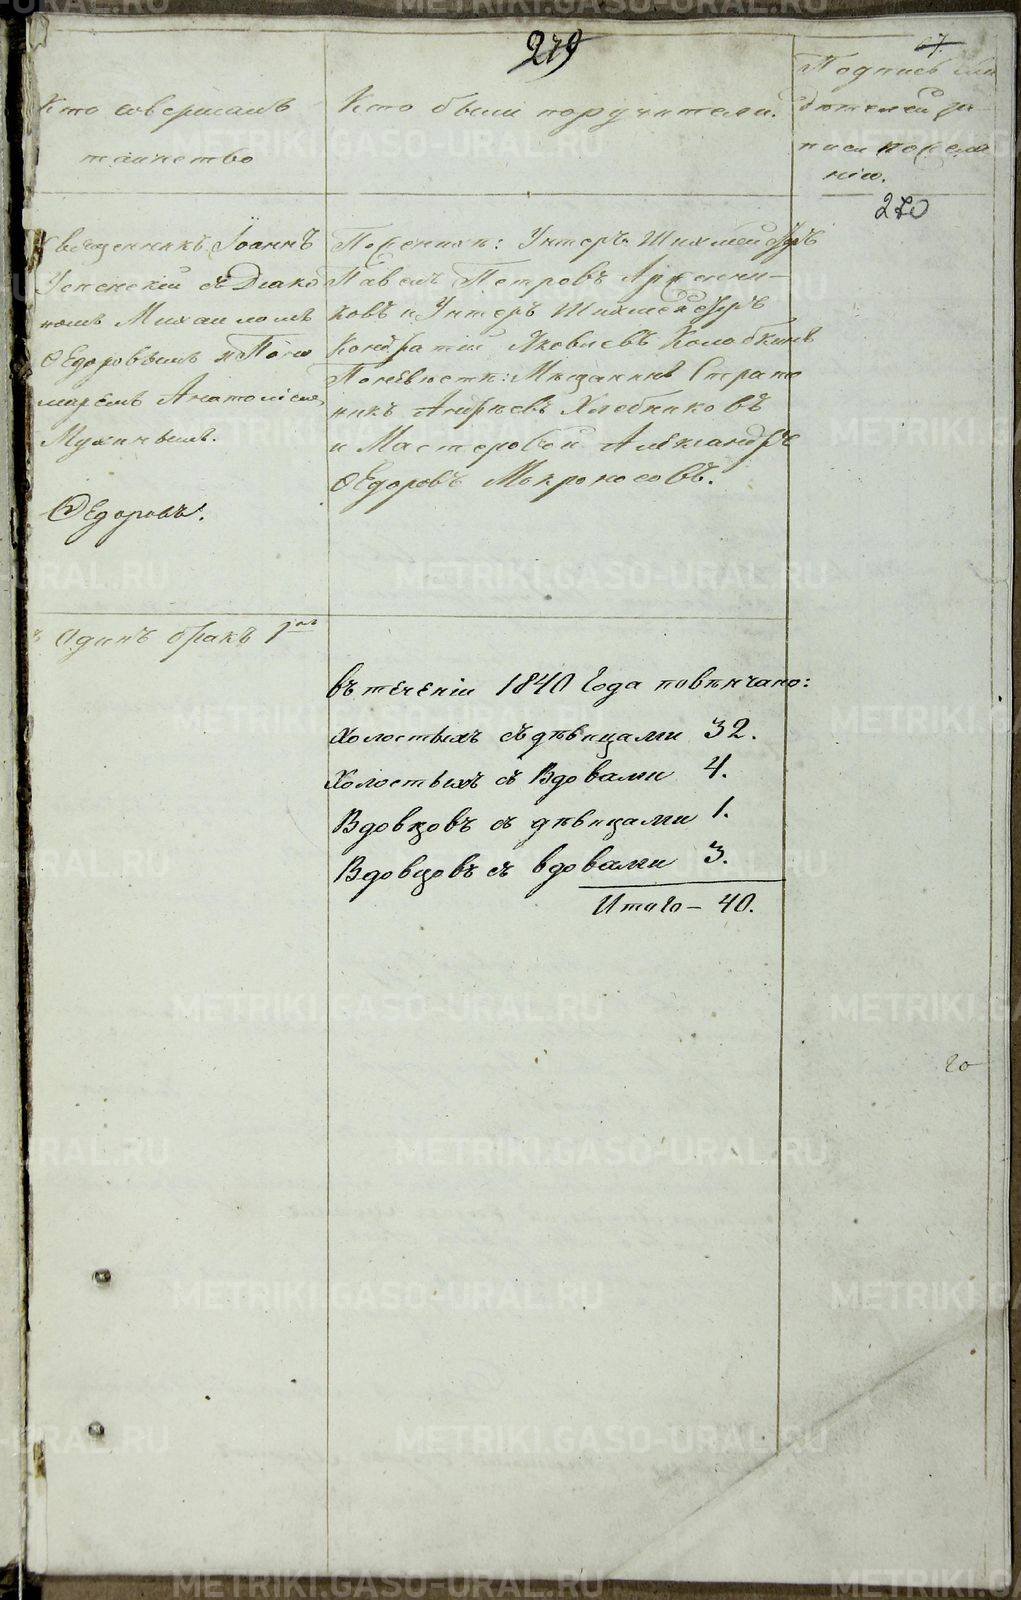 279
67.
Кто совершалъ
таинство
Кто были поручители.
Подпись сви
дѣтелей за
писи по жела
нію.
270
Священникъ Іоаннъ
Успенскій съ Діако
номъ Михаиломъ
Ѳедоровымъ и Поно
маремъ Анатоліемъ
Мухинымъ.
Ѳедоровъ.
По женихѣ: Унтеръ Шихмейстеръ
Павелъ Петровъ
ковъ и Унтеръ Шихмейстеръ
Кондратій Яковлевъ Колобкинъ
По невѣстѣ: Мѣщанинъ Страто
никъ Андреевъ Хлебниковъ
и Мастеровой Александръ
Ѳедоровъ Мокроносовъ.
Одинъ бракъ
въ теченіи 1840 Года повѣнчано:
Холостыхъ съ дѣвицами 32.
Холостыхъ съ Вдовами 4.
Вдовцовъ съ дѣвицами 1.
Вдовцовъ съ вдовами 3.
Итого – 40.
METRIKI.GASO-URAL.RU